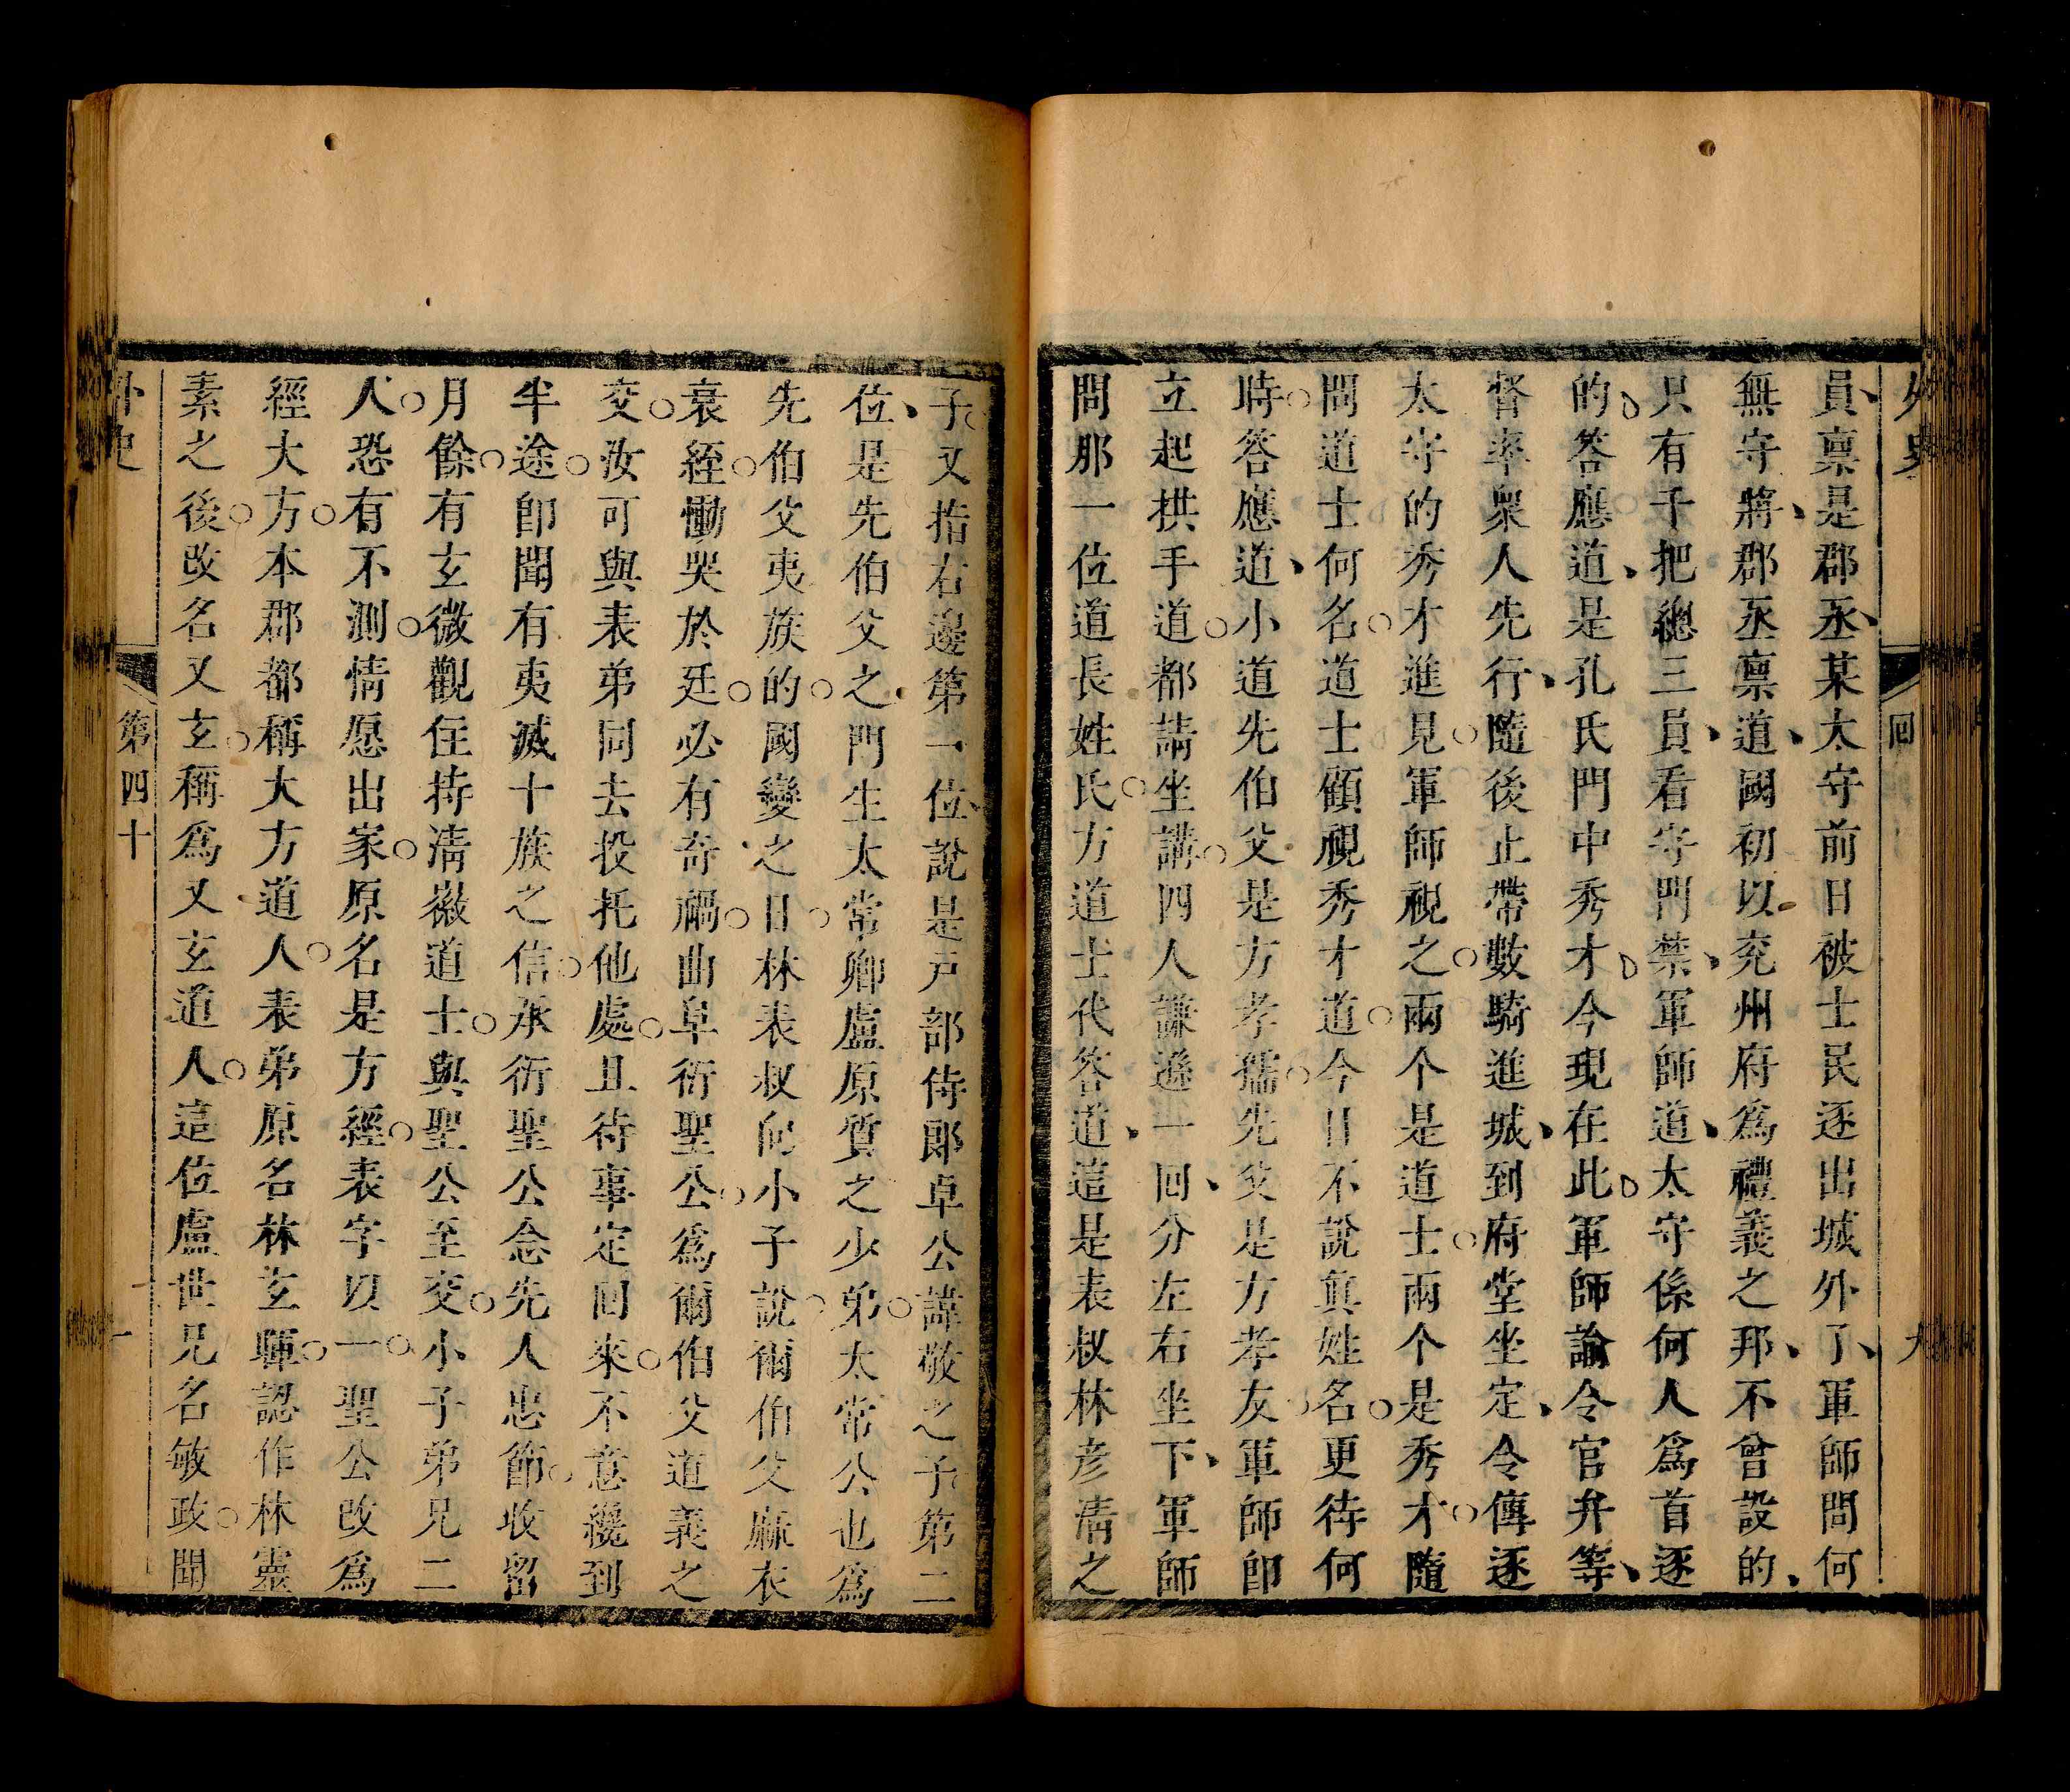 外史
回
員、稟是郡丞、某太守前日被士民逐出城外了、軍師問何
無守將、郡丞稟道、國初以兖州府爲禮義之邦、不曾設的、
只有千把總三員、看守門禁、軍師道、太守係何人爲首逐
的、答應道、是孔氏門中秀才、今現在此、軍師諭令官弁等、
督率衆人先行、隨後止帶數騎進城、到府堂坐定、令傳逐
太守的秀才進見。軍師視之。兩个是道士。兩个是秀才。隨
問道士何名。道士顧視秀才道。今日不說眞姓名。更待何
時。答應道、小道先伯父是方孝孺。先父是方孝友。軍師卽
立起拱手道。都請坐講。四人謙遜一回、分左右坐下、軍師
問那一位道長姓氏。方道士代答道、這是表叔林彦清之
子。又指右邊第一位、說是戸部侍郎卓公諱敬之子。第二
位、是先伯父之門生太常卿盧原質之少弟。太常公也爲
先伯父夷族的。國變之日。林表叔向小子說。爾伯父麻衣
衰絰。慟哭於廷。必有奇禍。曲阜衍聖公。爲爾伯父道義之
交。汝可與表弟同去投托他處。且待事定回來。不意纔到
半途。卽聞有夷滅十族之信。承衍聖公念先人忠節。收留
月餘。有玄微觀住持清微道士。與聖公至交。小子弟兄二
人。恐有不測。情愿出家。原名是方經。表字以一。聖公改爲
經大方。本郡都稱大方道人。表弟原名林玄暉。認作林靈
素之後。改名又玄。稱爲又玄道人。這位盧世兄名敏政。聞
外史
第四十